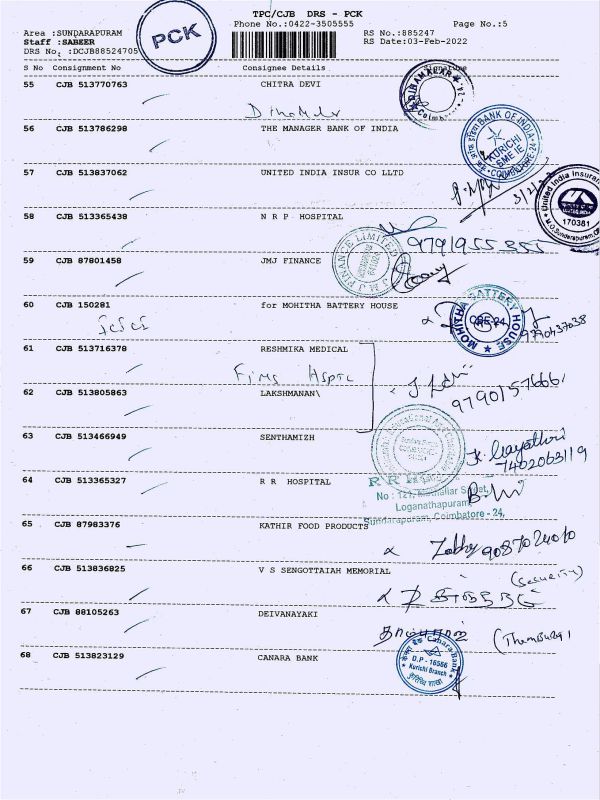 TPC/CJB DRS - PCK
Phone No.:0422-3505555
Page No.:5
PCK
Area :SUNDARAPURAM
Staff :SABEER
DRS No. :DCJB88524705
RS No.:885247
RS Date:03-Feb-2022
S No Consignment No Consignee Details Signature
55 CJB 513770763 CHITRA DEVI
56 CJB 513786298 THE MANAGER BANK OF INDIA
BANK OF INDIA
KURICHI
SME IE
COIMBATORE-24
57 CJB 513837062 UNITED INDIA INSUR CO LLTD
3/2/22
United India Insuran
170381
58 CJB 513365438 N R P HOSPITAL
9791955355
59 CJB 87801458 JMJ FINANCE
J M J FINANCE LIMITED
60 CJB 150281 for MOHITHA BATTERY HOUSE
MOHITHA BATTERY HOUSE
CBE-24
9790437038
61 CJB 513716378 RESHMIKA MEDICAL
Fims Hsptl
62 CJB 513805863 LAKSHMANAN\
9790157666
63 CJB 513466949 SENTHAMIZH
K. Gayathri
7402063119
64 CJB 513365327 R R HOSPITAL
Loganathapuram,
Sundarapuram, Coimbatore - 24,
65 CJB 87983376 KATHIR FOOD PRODUCTS
9087024010
66 CJB 513836825 V S SENGOTTAIAH MEMORIAL
(Security)
67 CJB 88105263 DEIVANAYAKI
68 CJB 513823129 CANARA BANK
Canara Bank
D.P - 16556
Kurichi Branch